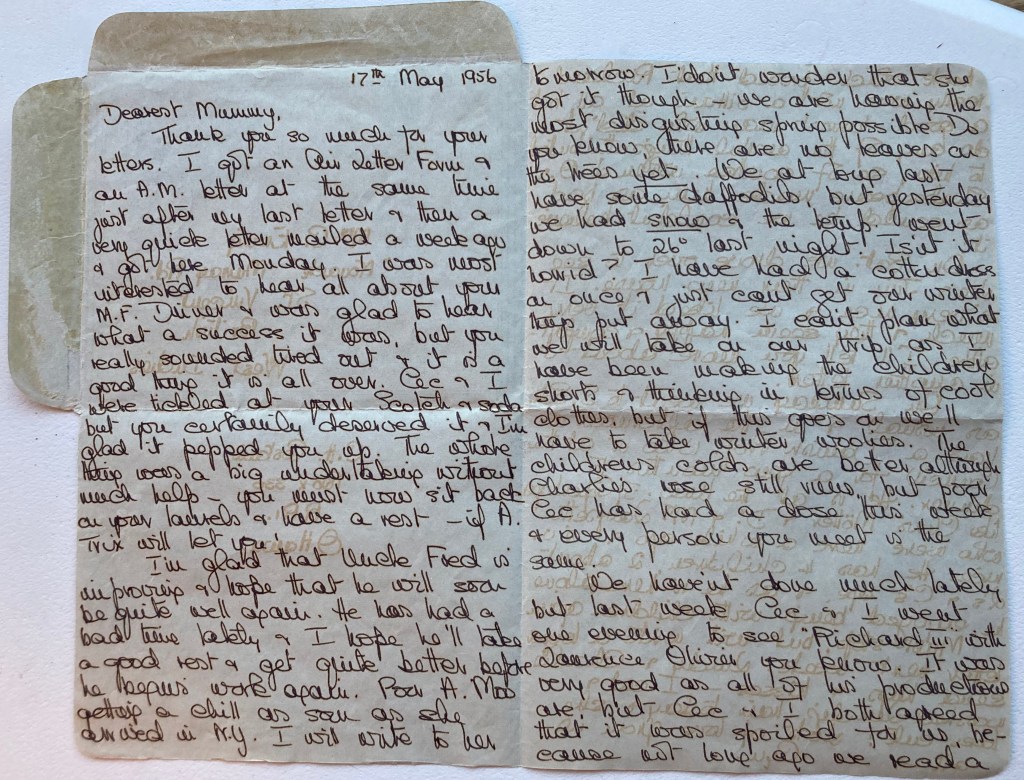 17th May 1956
Dearest Mummy,
Thank you so much for your
letters. I got an Air Letter Form &
an A.M. letter at the same time
just after my last letter & then a
very quick letter mailed a week ago
& got here Monday. I was most
interested to hear all about your
M.F. Dinner & was glad to hear
what a success it was, but you
really sounded tired out & it is a
good thing it is all over. Cec & I
were tickled at your Scotch & soda
but you certainly deserved it & I'm
glad it pepped you up. The whole
thing was a big undertaking without
much help – you must now sit back
on your laurels & have a rest – if A.
Trix will let you!
I'm glad that Uncle Fred is
improving & hope that he will soon
be quite well again. He has had a
bad time lately & I hope he'll take
a good rest & get quite better before
he begins work again. Poor A. Mos
getting a chill as soon as she
arrived in N.Y. I will write to her
tomorrow. I don't wonder that she
got it though – we are having the
most disgusting spring possible. Do
you know there are no leaves on
the trees yet. We at long last
have some daffodils, but yesterday
we had snow & the temp. went
down to 26° last night! Isn't it
horrid? I have had a cotton dress
on once & just can't get our winter
things put away. I can't plan what
we will take on our trip as I
have been making the children
shorts & thinking in terms of cool
clothes, but if this goes on we'll
have to take winter woolies. The
childrens colds are better although
Charlies nose still runs, but poor
Cec has had a dose this week
& every person you meet is the
same.
We haven't done much lately
but last week Cec & I went
one evening to see "Richard III" with
Lawrence Olivier you know. It was
very good as all of his productions
are, but Cec & I both agreed
that it was spoiled for us, be-
cause not long ago we read a